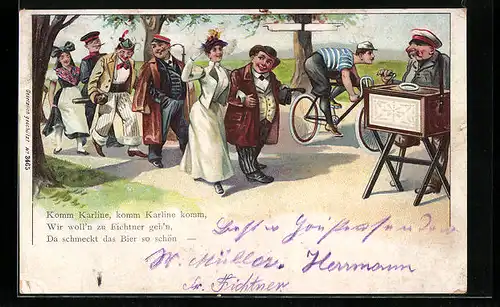 Gesetzlich geschützt No 3465
Komm Karline, komm Karline komm,
Wir woll'n zu Eichtner geh'n,
Da schmeckt das Bier so schön —
W. Müller. Herrmann
Fichtner